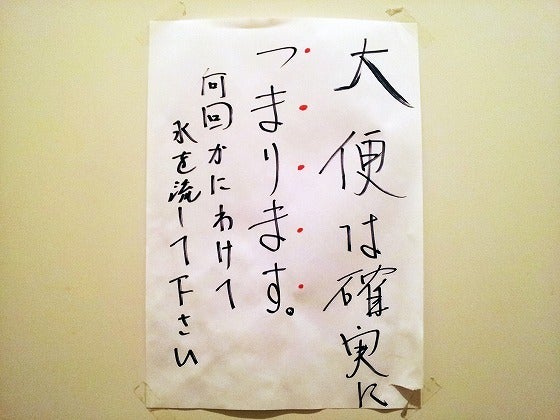 大便は確実に
つまります。
何回かにわけて
水を流して下さい